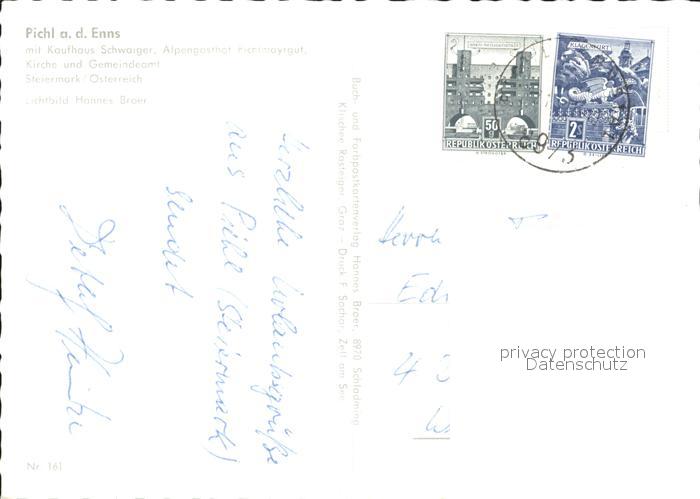 Pichl a. d. Enns
mit Kaufhaus Schwaiger, Alpengasthof Pichlmayrgut,
Kirche und Gemeindeamt
Steiermark/Österreich
Lichtbild Hannes Broer
Herzliche Urlaubsgrüße
aus Pichl (Steiermark)
sendet
Detlef
Nr. 161
Buch- und Farbpostkartenverlag Hannes Broer, 8970 Schladming
Klischee Rasteiger, Graz – Druck F. Sochor, Zell am See
50 g
REPUBLIK ÖSTERREICH
KLAGENFURT
2 S
REPUBLIK ÖSTERREICH
Herrn
Edi
43
privacy protection
Datenschutz